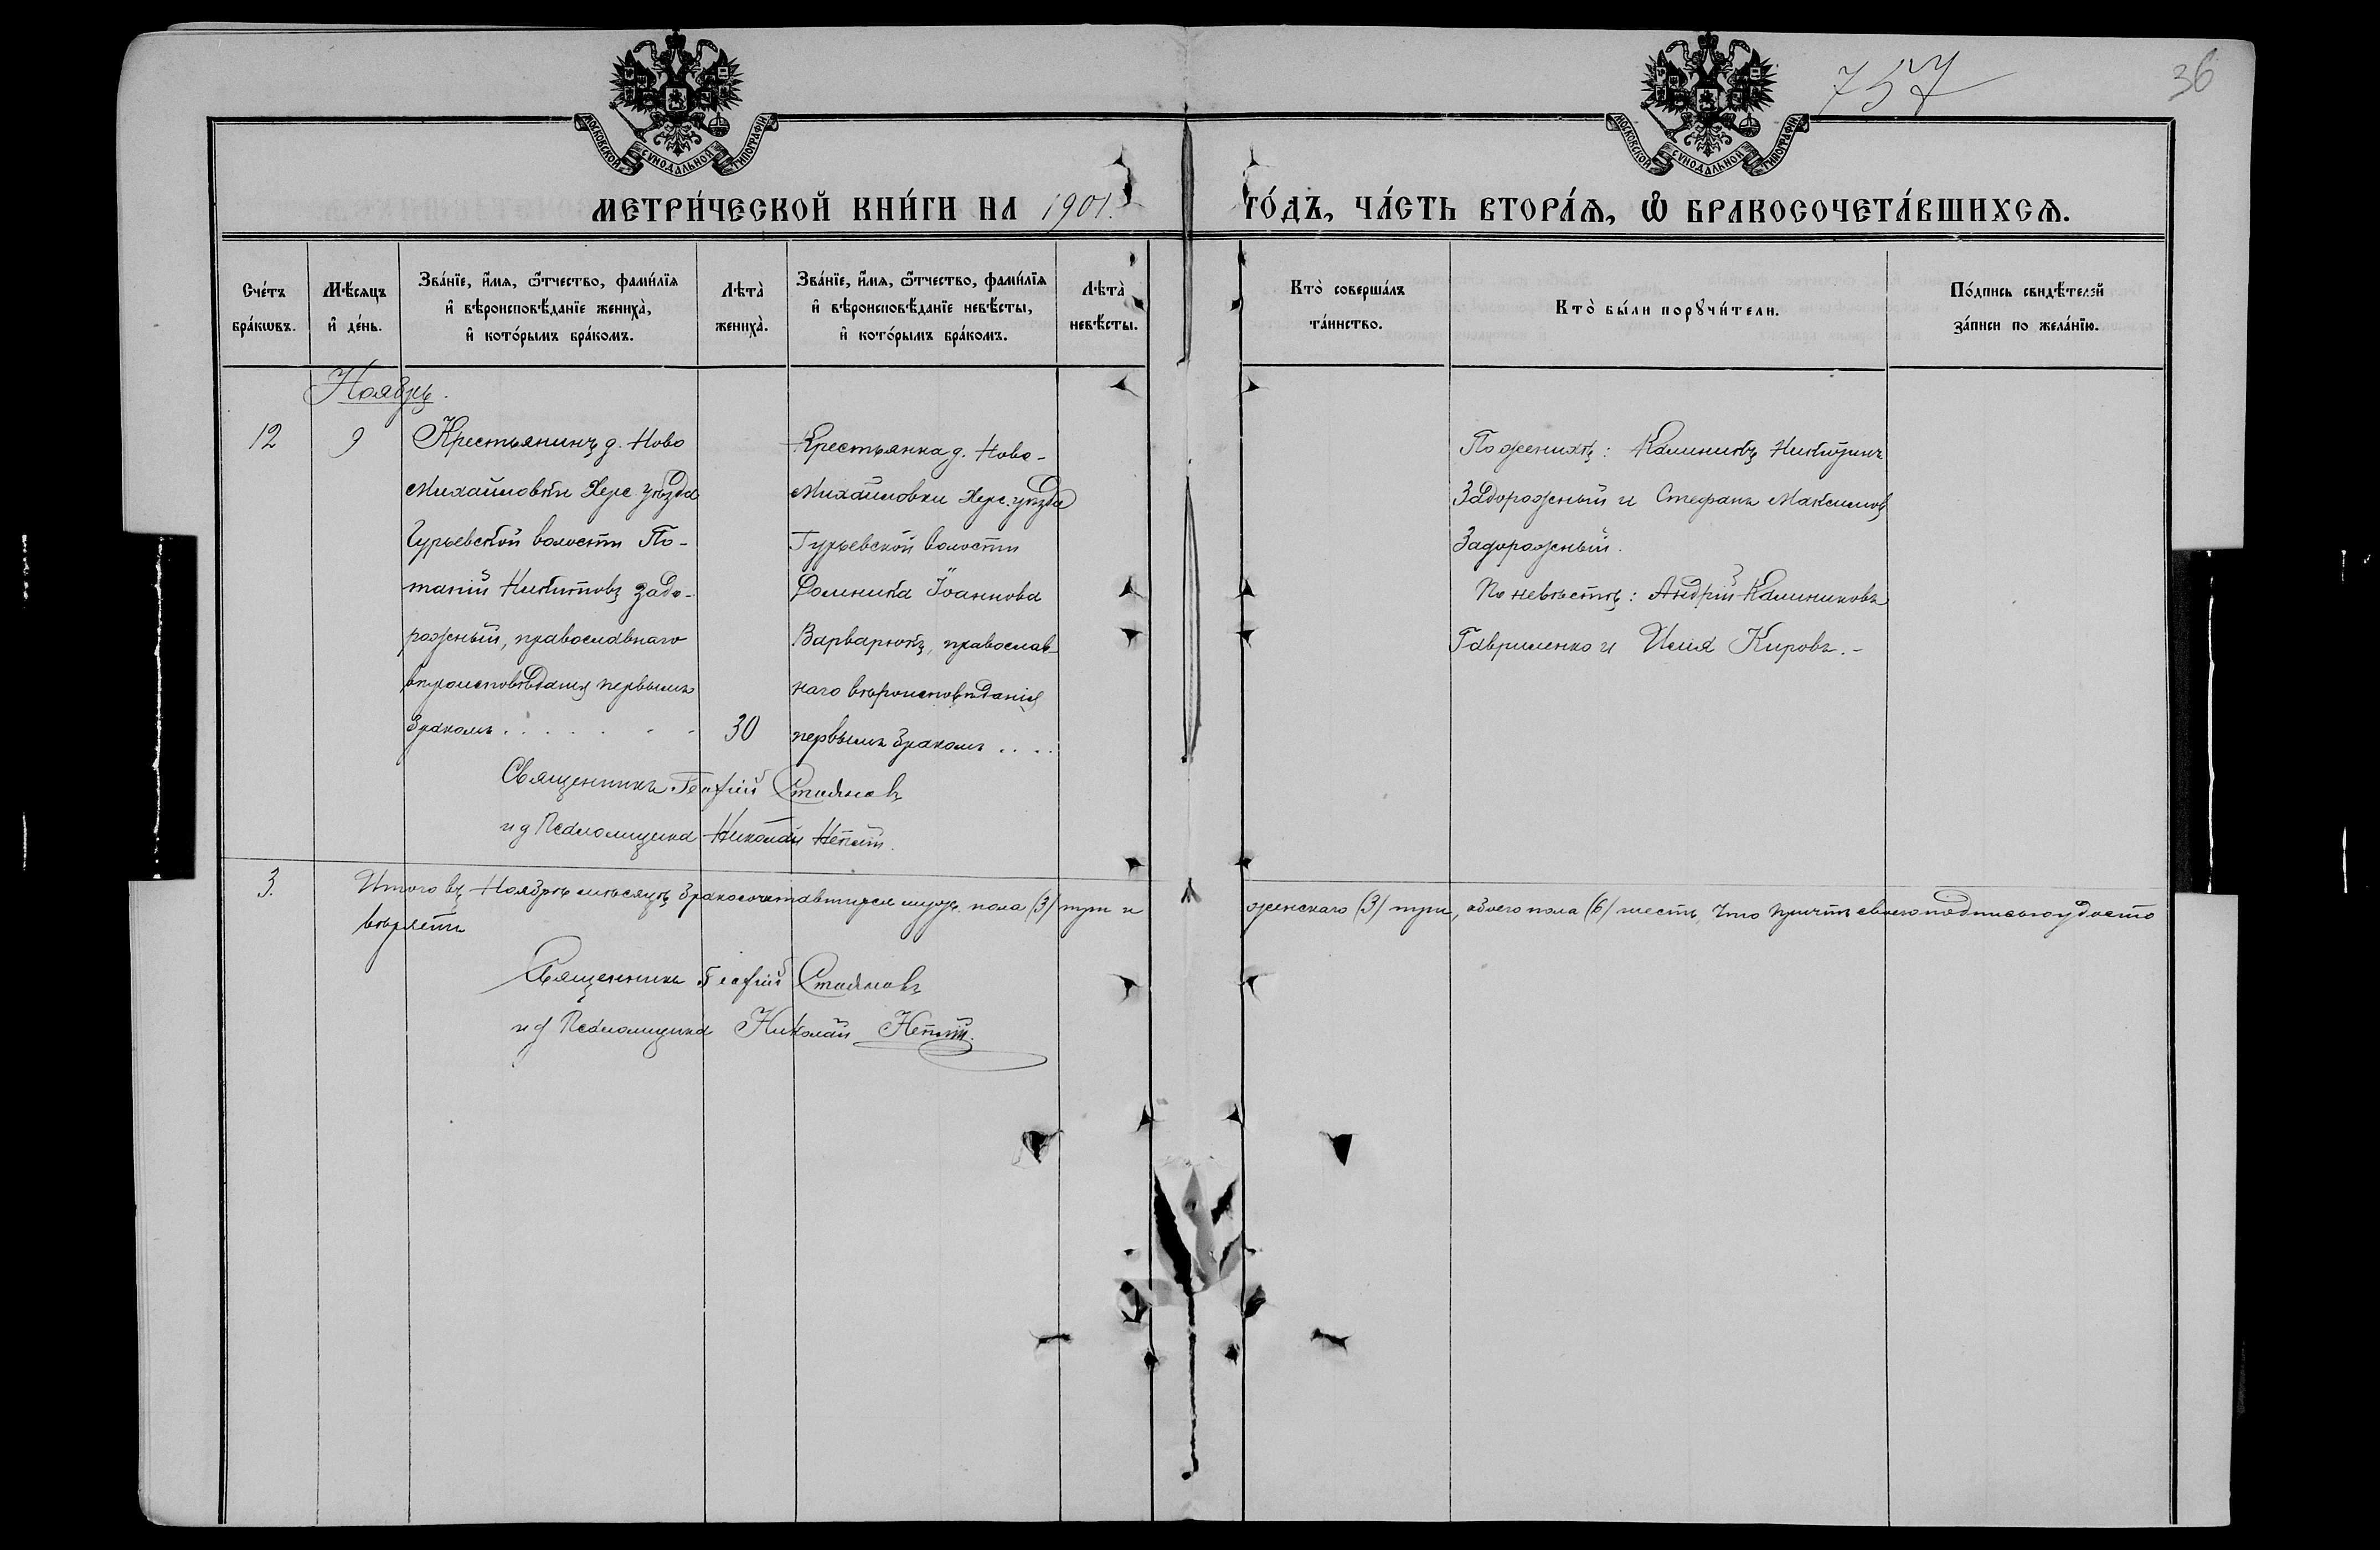 757
36
МОСКОВСКОЙ СѴНОДАЛЬНОЙ ТИПОГРАФІИ
МОСКОВСКОЙ СѴНОДАЛЬНОЙ ТИПОГРАФІИ
МЕТРИ́ЧЕСКОЙ КНИ́ГИ НА 1901. ГО́ДЪ, ЧА́СТЬ ВТОРА́Ѧ, Ѽ БРАКОСОЧЕТА́ВШИХСѦ.
Сче́тъ
бра́кѡвъ.
Мѣ́сѧцъ
и҆ де́нь.
Зва́нїе, и҆́мѧ, ѻ҆́тчество, фами́лїѧ
и҆ вѣроисповѣ́данїе жениха̀,
и҆ кото́рымъ бра́комъ.
Лѣта̀
жениха̀.
Зва́нїе, и҆́мѧ, ѻ҆́тчество, фами́лїѧ
и҆ вѣроисповѣ́данїе невѣ́сты,
и҆ кото́рымъ бра́комъ.
Лѣта̀
невѣ́сты.
Кто̀ соверша́лъ
та́инство.
Кто̀ бы́ли порꙋчи́тели.
По́дпись свидѣ́телей
за́писи по жела́нїю.
Ноябрь.
12
9
Крестьянинъ д. Ново
Михайловки Херс. уѣзда
Гурьевской волости По-
тапій Никитовъ Задо-
рожный, православнаго
вѣроисповѣданія первымъ
бракомъ . . . . . . .
30
Крестьянка д. Ново-
Михайловки Херс. уѣзда
Гурьевской волости
Доминика Іоаннова
Варварюкъ, православ-
наго вѣроисповѣданія
первымъ бракомъ . . . .
По женихѣ: Калиникъ Никитинъ
Задорожный и Стефанъ Максимовъ
Задорожный.
По невѣстѣ: Андрій Калиниковъ
Гавриленко и Илія Кировъ. -
Священникъ Георгій Стояновъ
и д Псаломщика Николай
3.
Итого въ Ноябрѣ мѣсяцѣ бракосочетавшихся мужск. пола (3) три и женскаго (3) три, обоего пола (6) шесть, что причтъ своею подписью удосто
вѣряетъ
Священникъ Георгій Стояновъ
и д Псаломщика Николай